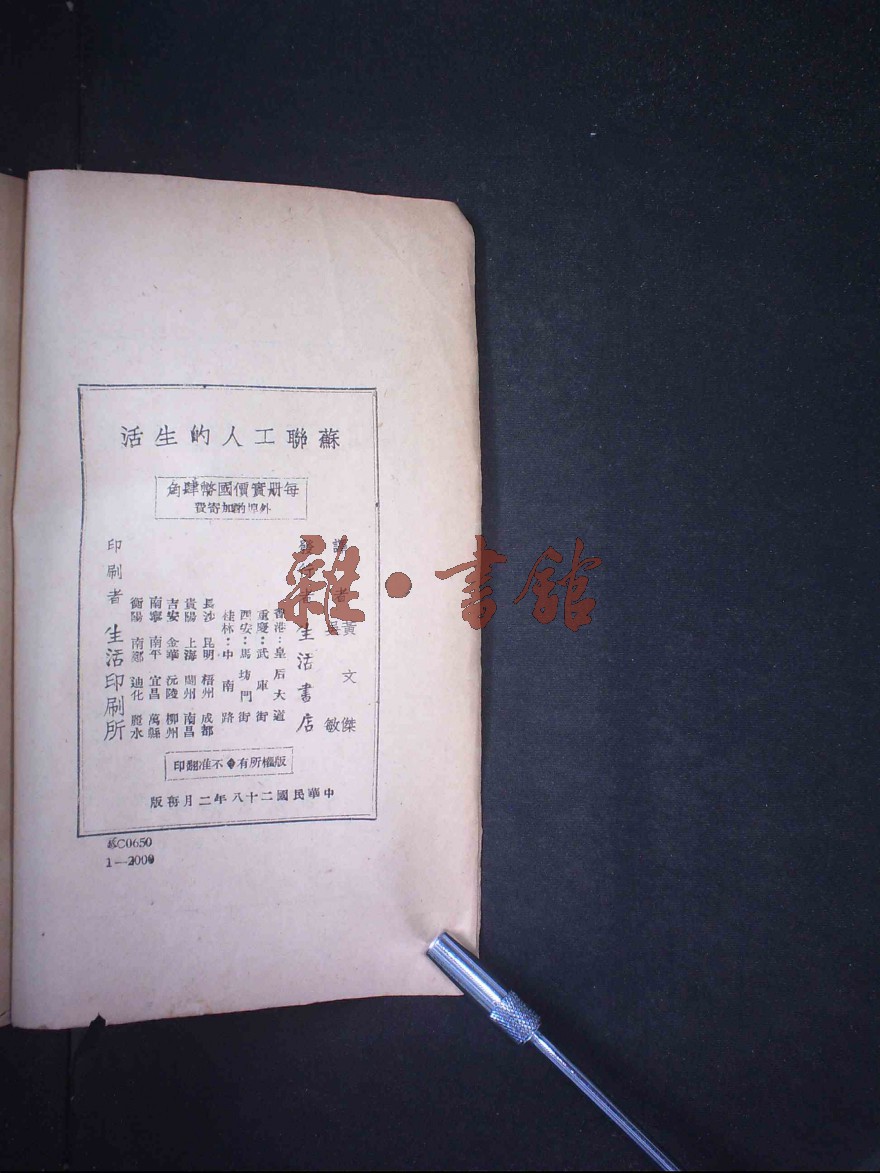 蘇聯工人的生活
每册實價國幣肆角
外埠酌加寄費
譯者 黃文傑
吳敏
發行者 生活書店
香港：皇后大道
重慶：武庫街
西安：馬坊門街
桂林：中南路
長沙 昆明 梧州 成都
貴陽 上海 蘭州 南昌
吉安 金華 沅陵 柳州
南寧 南平 宜昌 萬縣
衡陽 南鄭 迪化 麗水
印刷者 生活印刷所
版權所有◆不准翻印
中華民國二十八年二月再版
C0650
1—2000
雜·書館